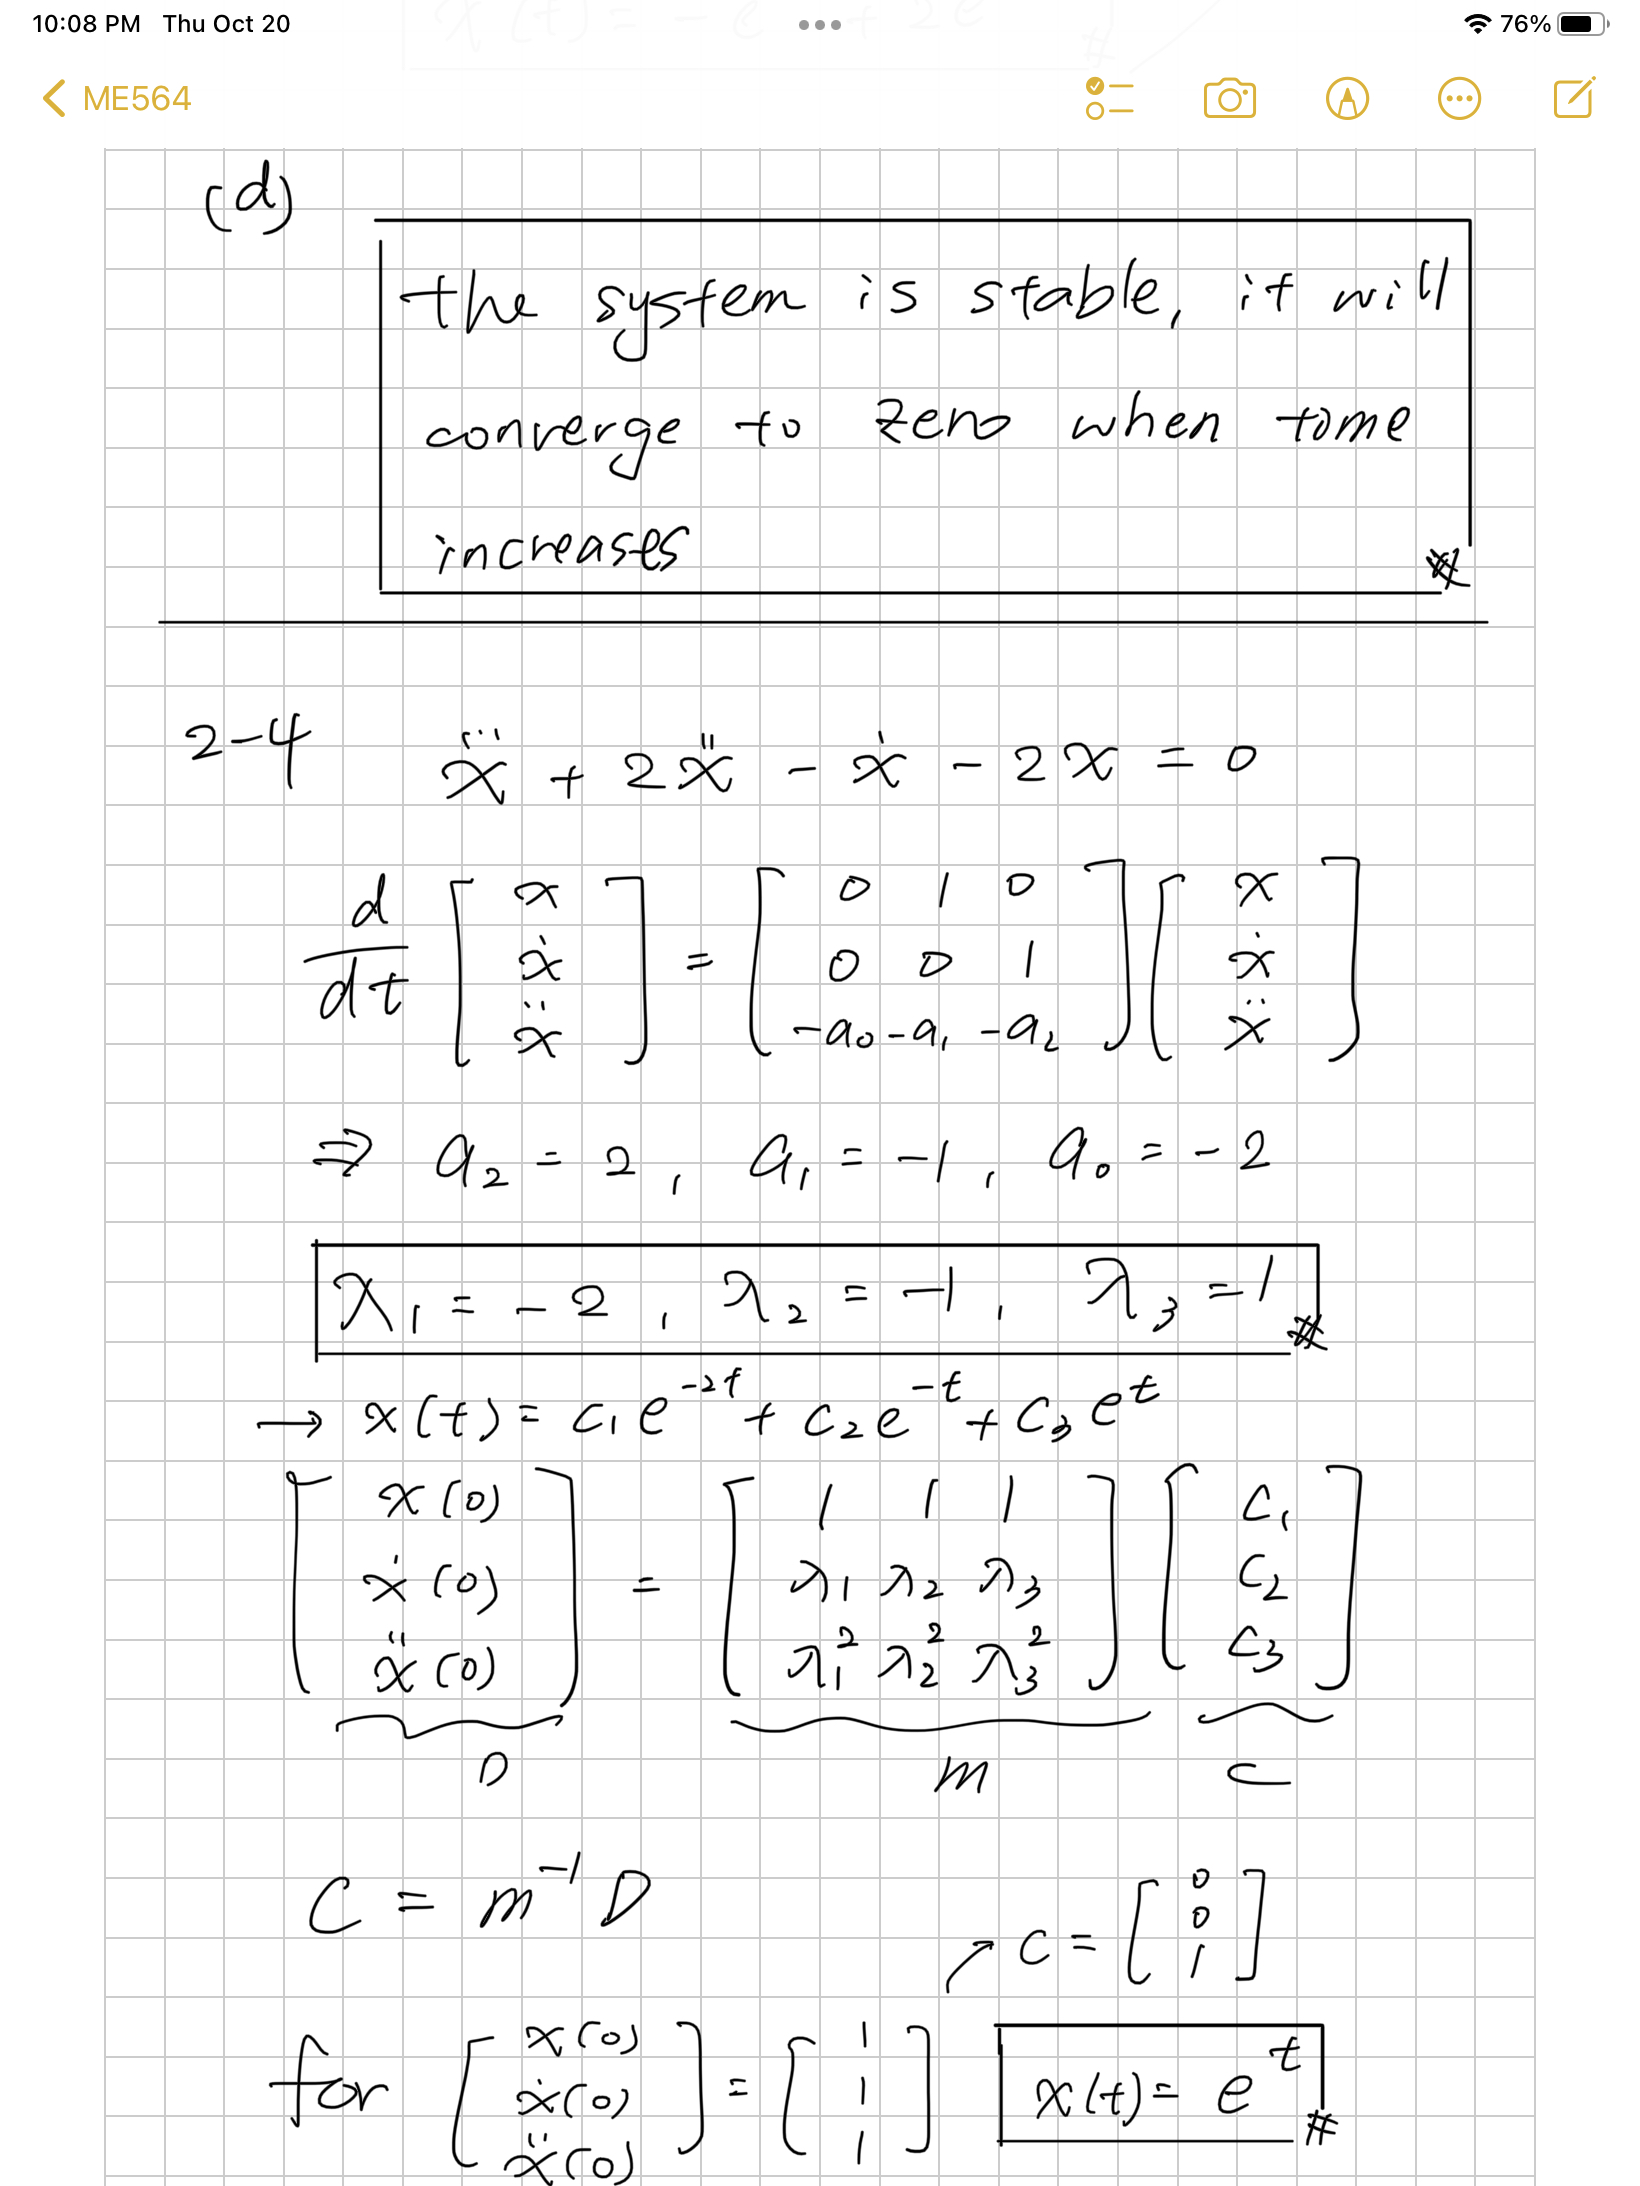 10:08 PM Thu Oct 20
76%
ME564
(d)
the system is stable, it will
converge to zero when tome
increases
2-4 x⃛ + 2ẍ - ẋ - 2x = 0
d/dt [x ẋ ẍ] = [0 1 0; 0 0 1; -a₀ -a₁ -a₂] [x ẋ ẍ]
⇒ a₂ = 2, a₁ = -1, a₀ = -2
λ₁ = -2, λ₂ = -1, λ₃ = 1 #
→ x(t) = c₁e^(-2t) + c₂e^(-t) + c₃e^t
[x(0) ẋ(0) ẍ(0)] = [1 1 1; λ₁ λ₂ λ₃; λ₁² λ₂² λ₃²] [c₁ c₂ c₃]
D m C
C = m⁻¹D
↗ C = [0 0 1]
for [x(0) ẋ(0) ẍ(0)] = [1 1 1] x(t) = e^t #